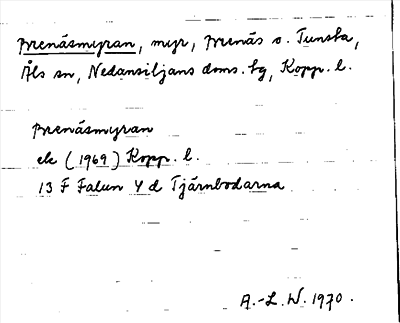 Prenäsmyran, myr, Prenäs o. Tunsta,
Åls sn, Nedansiljans doms. hg, Kopp. l.
Prenäsmyran
ek (1969) Kopp. l.
13 F Falun 4 d Tjärnbodarna
A.-L. W. 1970.